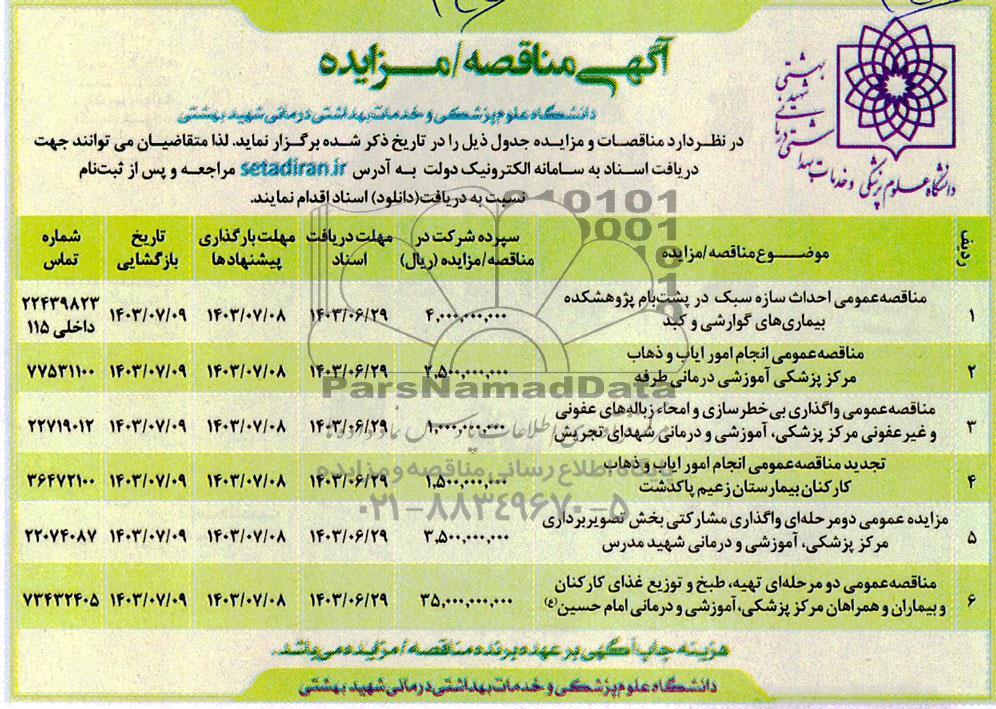 آگهی مناقصه/مزایده
دانشگاه علوم پزشکی و خدمات بهداشتی درمانی شهید بهشتی
در نظر دارد مناقصات و مزایده جدول ذیل را در تاریخ ذکر شده برگزار نماید. لذا متقاضیان می توانند جهت
دریافت اسناد به سامانه الکترونیک دولت به آدرس setadiran.ir مراجعه و پس از ثبت‌نام
نسبت به دریافت(دانلود) اسناد اقدام نمایند.
دانشگاه علوم پزشکی و خدمات بهداشتی درمانی شهید بهشتی
ردیف موضوع مناقصه/مزایده سپرده شرکت در مناقصه/مزایده (ریال) مهلت دریافت اسناد مهلت بارگذاری پیشنهادها تاریخ بازگشایی شماره تماس
۱ مناقصه عمومی احداث سازه سبک در پشت‌بام پژوهشکده
بیماری‌های گوارشی و کبد ۴,۰۰۰,۰۰۰,۰۰۰ ۱۴۰۳/۰۶/۲۹ ۱۴۰۳/۰۷/۰۸ ۱۴۰۳/۰۷/۰۹ ۲۲۴۳۹۸۲۳
داخلی ۱۱۵
۲ مناقصه عمومی انجام امور ایاب و ذهاب
مرکز پزشکی آموزشی درمانی طرفه ۲,۵۰۰,۰۰۰,۰۰۰ ۱۴۰۳/۰۶/۲۹ ۱۴۰۳/۰۷/۰۸ ۱۴۰۳/۰۷/۰۹ ۷۷۵۳۱۱۰۰
۳ مناقصه عمومی واگذاری بی خطرسازی و امحاء زباله‌های عفونی
و غیرعفونی مرکز پزشکی، آموزشی و درمانی شهدای تجریش ۱,۰۰۰,۰۰۰,۰۰۰ ۱۴۰۳/۰۶/۲۹ ۱۴۰۳/۰۷/۰۸ ۱۴۰۳/۰۷/۰۹ ۲۲۷۱۹۰۱۲
۴ تجدید مناقصه عمومی انجام امور ایاب و ذهاب
کارکنان بیمارستان زعیم پاکدشت ۱,۵۰۰,۰۰۰,۰۰۰ ۱۴۰۳/۰۶/۲۹ ۱۴۰۳/۰۷/۰۸ ۱۴۰۳/۰۷/۰۹ ۳۶۴۷۲۱۰۰
۵ مزایده عمومی دومرحله‌ای واگذاری مشارکتی بخش تصویربرداری
مرکز پزشکی، آموزشی و درمانی شهید مدرس ۳,۵۰۰,۰۰۰,۰۰۰ ۱۴۰۳/۰۶/۲۹ ۱۴۰۳/۰۷/۰۸ ۱۴۰۳/۰۷/۰۹ ۲۲۰۷۴۰۸۷
۶ مناقصه عمومی دو مرحله‌ای تهیه، طبخ و توزیع غذای کارکنان
و بیماران و همراهان مرکز پزشکی، آموزشی و درمانی امام حسین(ع) ۳۵,۰۰۰,۰۰۰,۰۰۰ ۱۴۰۳/۰۶/۲۹ ۱۴۰۳/۰۷/۰۸ ۱۴۰۳/۰۷/۰۹ ۷۳۴۳۲۴۰۵
ParsNamadData
پایگاه اطلاع رسانی مناقصه و مزایده
۰۲۱-۸۸۳۴۹۶۷۰-۵
هزینه چاپ آگهی بر عهده برنده مناقصه/مزایده می‌باشد.
دانشگاه علوم پزشکی و خدمات بهداشتی درمانی شهید بهشتی